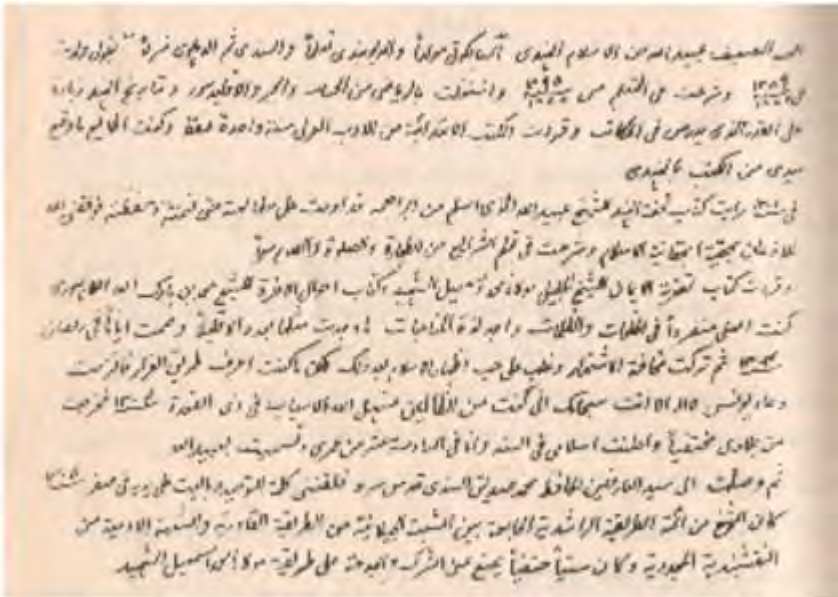 العبد الضعيف عبيد الله بن الاسلام الهندي السيالكوتي مولداً والديوبندي تعلماً والسندي ثم الدهلوي يقول ولدت
في ١٢٨٩ وشرعت في التعلم من ١٢٩٥ واشتغلت بالرياضي من الحساب والجبر والاقليدس وتاريخ الهند زيادة
على القدر الذي يدرس في المكاتب وقرأت الكتب الابتدائية من الادب سنة واحدة فقط وكنت اطالع
من الكتب بالهندي
في رأيت كتاب تحفة الهند للشيخ عبيد الله الذي اسلم من البراهمة فداومت على مطالعته حتى فهمته وحفظته فوفقني الله
للاذعان بحقية الاسلام وشرعت في تعلم الشرائع من الطهارة والصلوة والصوم
وقرأت كتاب تقوية الايمان للشيخ مولانا اسمعيل الشهيد وكتاب احوال الاخرة للشيخ محمد بن بارك الله اللاهوري
كنت اصلي منفرداً في الخلوات والظلمات واجد لذة المناجات وصمت اياماً في رمضان
ثم تركت مخافة الاشتهار وغلب علي حب اظهار الاسلام بعد ذلك لكن ما كنت اعرف طريق الفرار فالتزمت
دعاء يونس لا اله الا انت سبحانك اني كنت من الظالمين فسهل الله الاسباب في ذي القعدة فخرجت
من بلادي مختفياً واعلنت اسلامي في السند وانا في السادسة عشر من عمري وتسميت بعبيد الله
ثم وصلت الى سيد العارفين الحافظ محمد صديق السندي قدس سره فلقنني كلمة التوحيد والبيت على يده في صفر
كان الشيخ من ائمة الطريقة الراشدية الجامعة بين النسبة الجيلانية من الطريقة القادرية والنسبة الادمية من
النقشبندية المجددية وكان سنياً حنفياً يمنع عن الشرك والبدعة على طريقة مولانا اسمعيل الشهيد